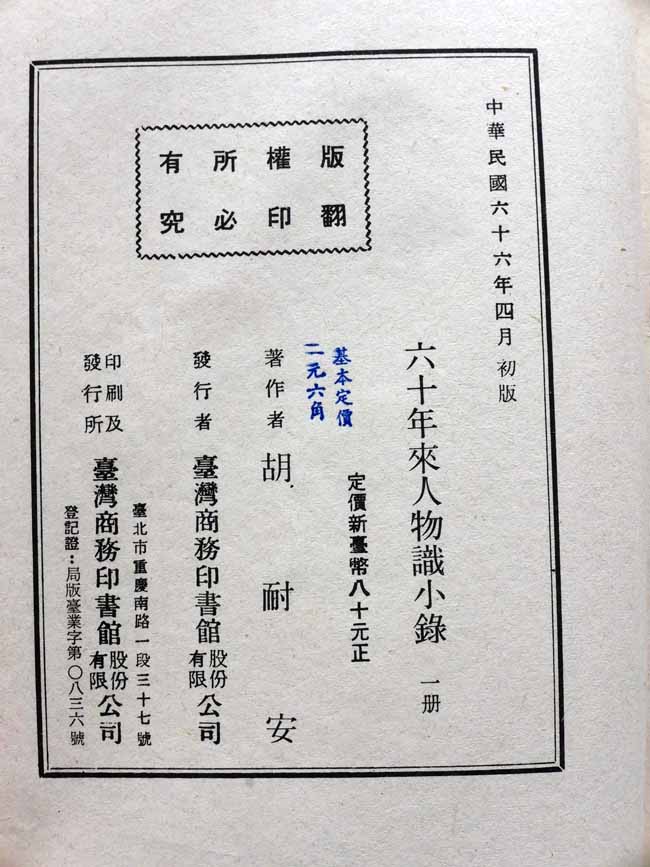 中華民國六十六年四月初版
版權所有
翻印必究
六十年來人物識小錄 一册
定價新臺幣八十元正
基本定價
二元六角
著作者 胡耐安
發行者 臺灣商務印書館股份有限公司
臺北市重慶南路一段三十七號
印刷及發行所 臺灣商務印書館股份有限公司
登記證：局版臺業字第〇八三六號